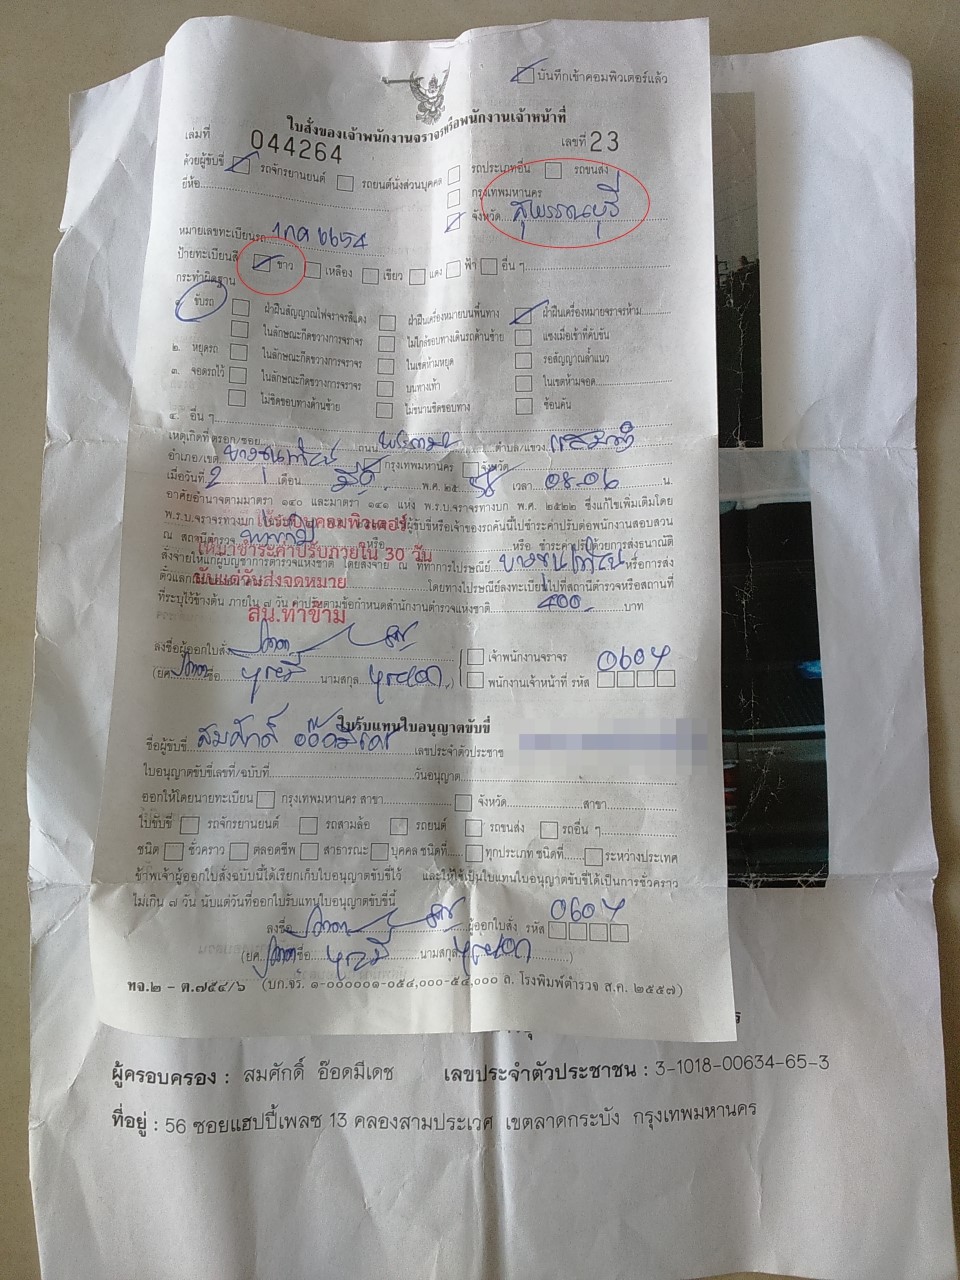 บันทึกเข้าคอมพิวเตอร์แล้ว
ใบสั่งของเจ้าพนักงานจราจรหรือพนักงานเจ้าหน้าที่
เล่มที่ 044264 เลขที่ 23
ด้วยผู้ขับขี่ รถจักรยานยนต์ รถยนต์นั่งส่วนบุคคล รถประเภทอื่น รถขนส่ง
ยี่ห้อ กรุงเทพมหานคร
จังหวัด สุพรรณบุรี
หมายเลขทะเบียนรถ 1กถ 6654
ป้ายทะเบียนสี ขาว เหลือง เขียว แดง ฟ้า อื่น ๆ
กระทำผิดฐาน
ขับรถ ฝ่าฝืนสัญญาณไฟจราจรสีแดง ฝ่าฝืนเครื่องหมายบนพื้นทาง ฝ่าฝืนเครื่องหมายจราจรห้าม
ในลักษณะกีดขวางการจราจร ไม่ใกล้ขอบทางเดินรถด้านซ้าย แซงเมื่อเข้าที่คับขัน
๒. หยุดรถ ในลักษณะกีดขวางการจราจร ในเขตห้ามหยุด รอสัญญาณล้ำแนว
๓. จอดรถไว้ ในลักษณะกีดขวางการจราจร บนทางเท้า ในเขตห้ามจอด
ไม่ชิดขอบทางด้านซ้าย ไม่ขนานชิดขอบทาง ซ้อนคัน
๔. อื่น ๆ
เหตุเกิดที่ ตรอก/ซอย ถนน พระราม 2 ตำบล/แขวง แสมดำ
อำเภอ/เขต บางขุนเทียน กรุงเทพมหานคร จังหวัด
เมื่อวันที่ 2 เดือน มีค พ.ศ. ๒๕ 58 เวลา 08.06 น.
อาศัยอำนาจตามมาตรา ๑๔๐ และมาตรา ๑๔๑ แห่ง พ.ร.บ.จราจรทางบก พ.ศ. ๒๕๒๒ ซึ่งแก้ไขเพิ่มเติมโดย
พ.ร.บ.จราจรทางบก ผู้ขับขี่หรือเจ้าของรถคันนี้ไปชำระค่าปรับต่อพนักงานสอบสวน
ใช้ระบบคอมพิวเตอร์
ณ สถานีตำรวจ หรือ หรือ ชำระค่าปรับด้วยการส่งธนาณัติ
ให้มาชำระค่าปรับภายใน 30 วัน
สั่งจ่ายให้แก่ผู้บัญชาการตำรวจแห่งชาติ โดยส่งจ่าย ณ ที่ทำการไปรษณีย์ บางขุนเทียน หรือการส่ง
นับแต่วันส่งจดหมาย
ตั๋วแลก โดยทางไปรษณีย์ลงทะเบียนไปที่สถานีตำรวจหรือสถานที่
ที่ระบุไว้ข้างต้น ภายใน ๗ วัน ค่าปรับตามข้อกำหนดสำนักงานตำรวจแห่งชาติ 400.- บาท
สน.ท่าข้าม
ลงชื่อผู้ออกใบสั่ง เจ้าพนักงานจราจร 0604
(ยศ ชื่อ นามสกุล ) พนักงานเจ้าหน้าที่ รหัส
ใบรับแทนใบอนุญาตขับขี่
ชื่อผู้ขับขี่ สมศักดิ์ อ๊อดมีเดช เลขประจำตัวประชาช
ใบอนุญาตขับขี่เลขที่/ฉบับที่ วันอนุญาต
ออกให้โดยนายทะเบียน กรุงเทพมหานคร สาขา จังหวัด สาขา
ใบขับขี่ รถจักรยานยนต์ รถสามล้อ รถยนต์ รถขนส่ง รถอื่น ๆ
ชนิด ชั่วคราว ตลอดชีพ สาธารณะ บุคคล ชนิดที่ ทุกประเภท ชนิดที่ ระหว่างประเทศ
ข้าพเจ้าผู้ออกใบสั่งฉบับนี้ได้เรียกเก็บใบอนุญาตขับขี่ไว้ และให้ใช้เป็นใบแทนใบอนุญาตขับขี่ได้เป็นการชั่วคราว
ไม่เกิน ๗ วัน นับแต่วันที่ออกใบรับแทนใบอนุญาตขับขี่นี้
ลงชื่อ ผู้ออกใบสั่ง รหัส 0604
(ยศ ชื่อ นามสกุล )
ทจ.๒ - ต.๗๕๔/๖ (บก.จร. ๑-๐๐๐๐๐๑-๐๕๔,๐๐๐-๕๔,๐๐๐ ล. โรงพิมพ์ตำรวจ ส.ค. ๒๕๕๗)
ผู้ครอบครอง : สมศักดิ์ อ๊อดมีเดช เลขประจำตัวประชาชน : 3-1018-00634-65-3
ที่อยู่ : 56 ซอยแฮปปี้เพลซ 13 คลองสามประเวศ เขตลาดกระบัง กรุงเทพมหานคร